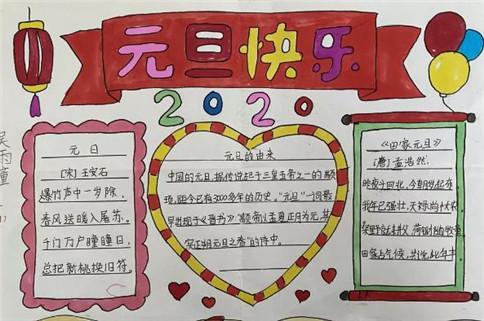 元旦快乐
2020
元日
[宋]王安石
爆竹声中一岁除
春风送暖入屠苏.
千门万户曈曈日
总把新桃换旧符.
元旦的由来
中国的元旦,据传说起于三皇五帝之一的颛
顼,距今已有3000多年的历史。"元旦"一词最
早出现于《晋书》"颛帝以孟夏正月为元,其
实正朔元旦之春"的诗中。
《田家元旦》
[唐]孟浩然.
昨夜斗回北,今朝岁起东
我年已强壮,无禄尚忧农.
桑野就耕父,荷锄随牧童
田家占气候,共说此年丰.